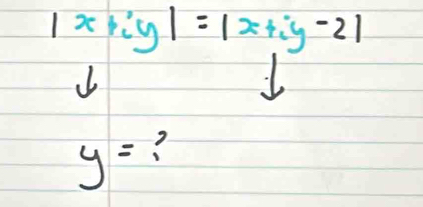 |x+iy| = |x+iy-2|
↓ ↓
y = ?